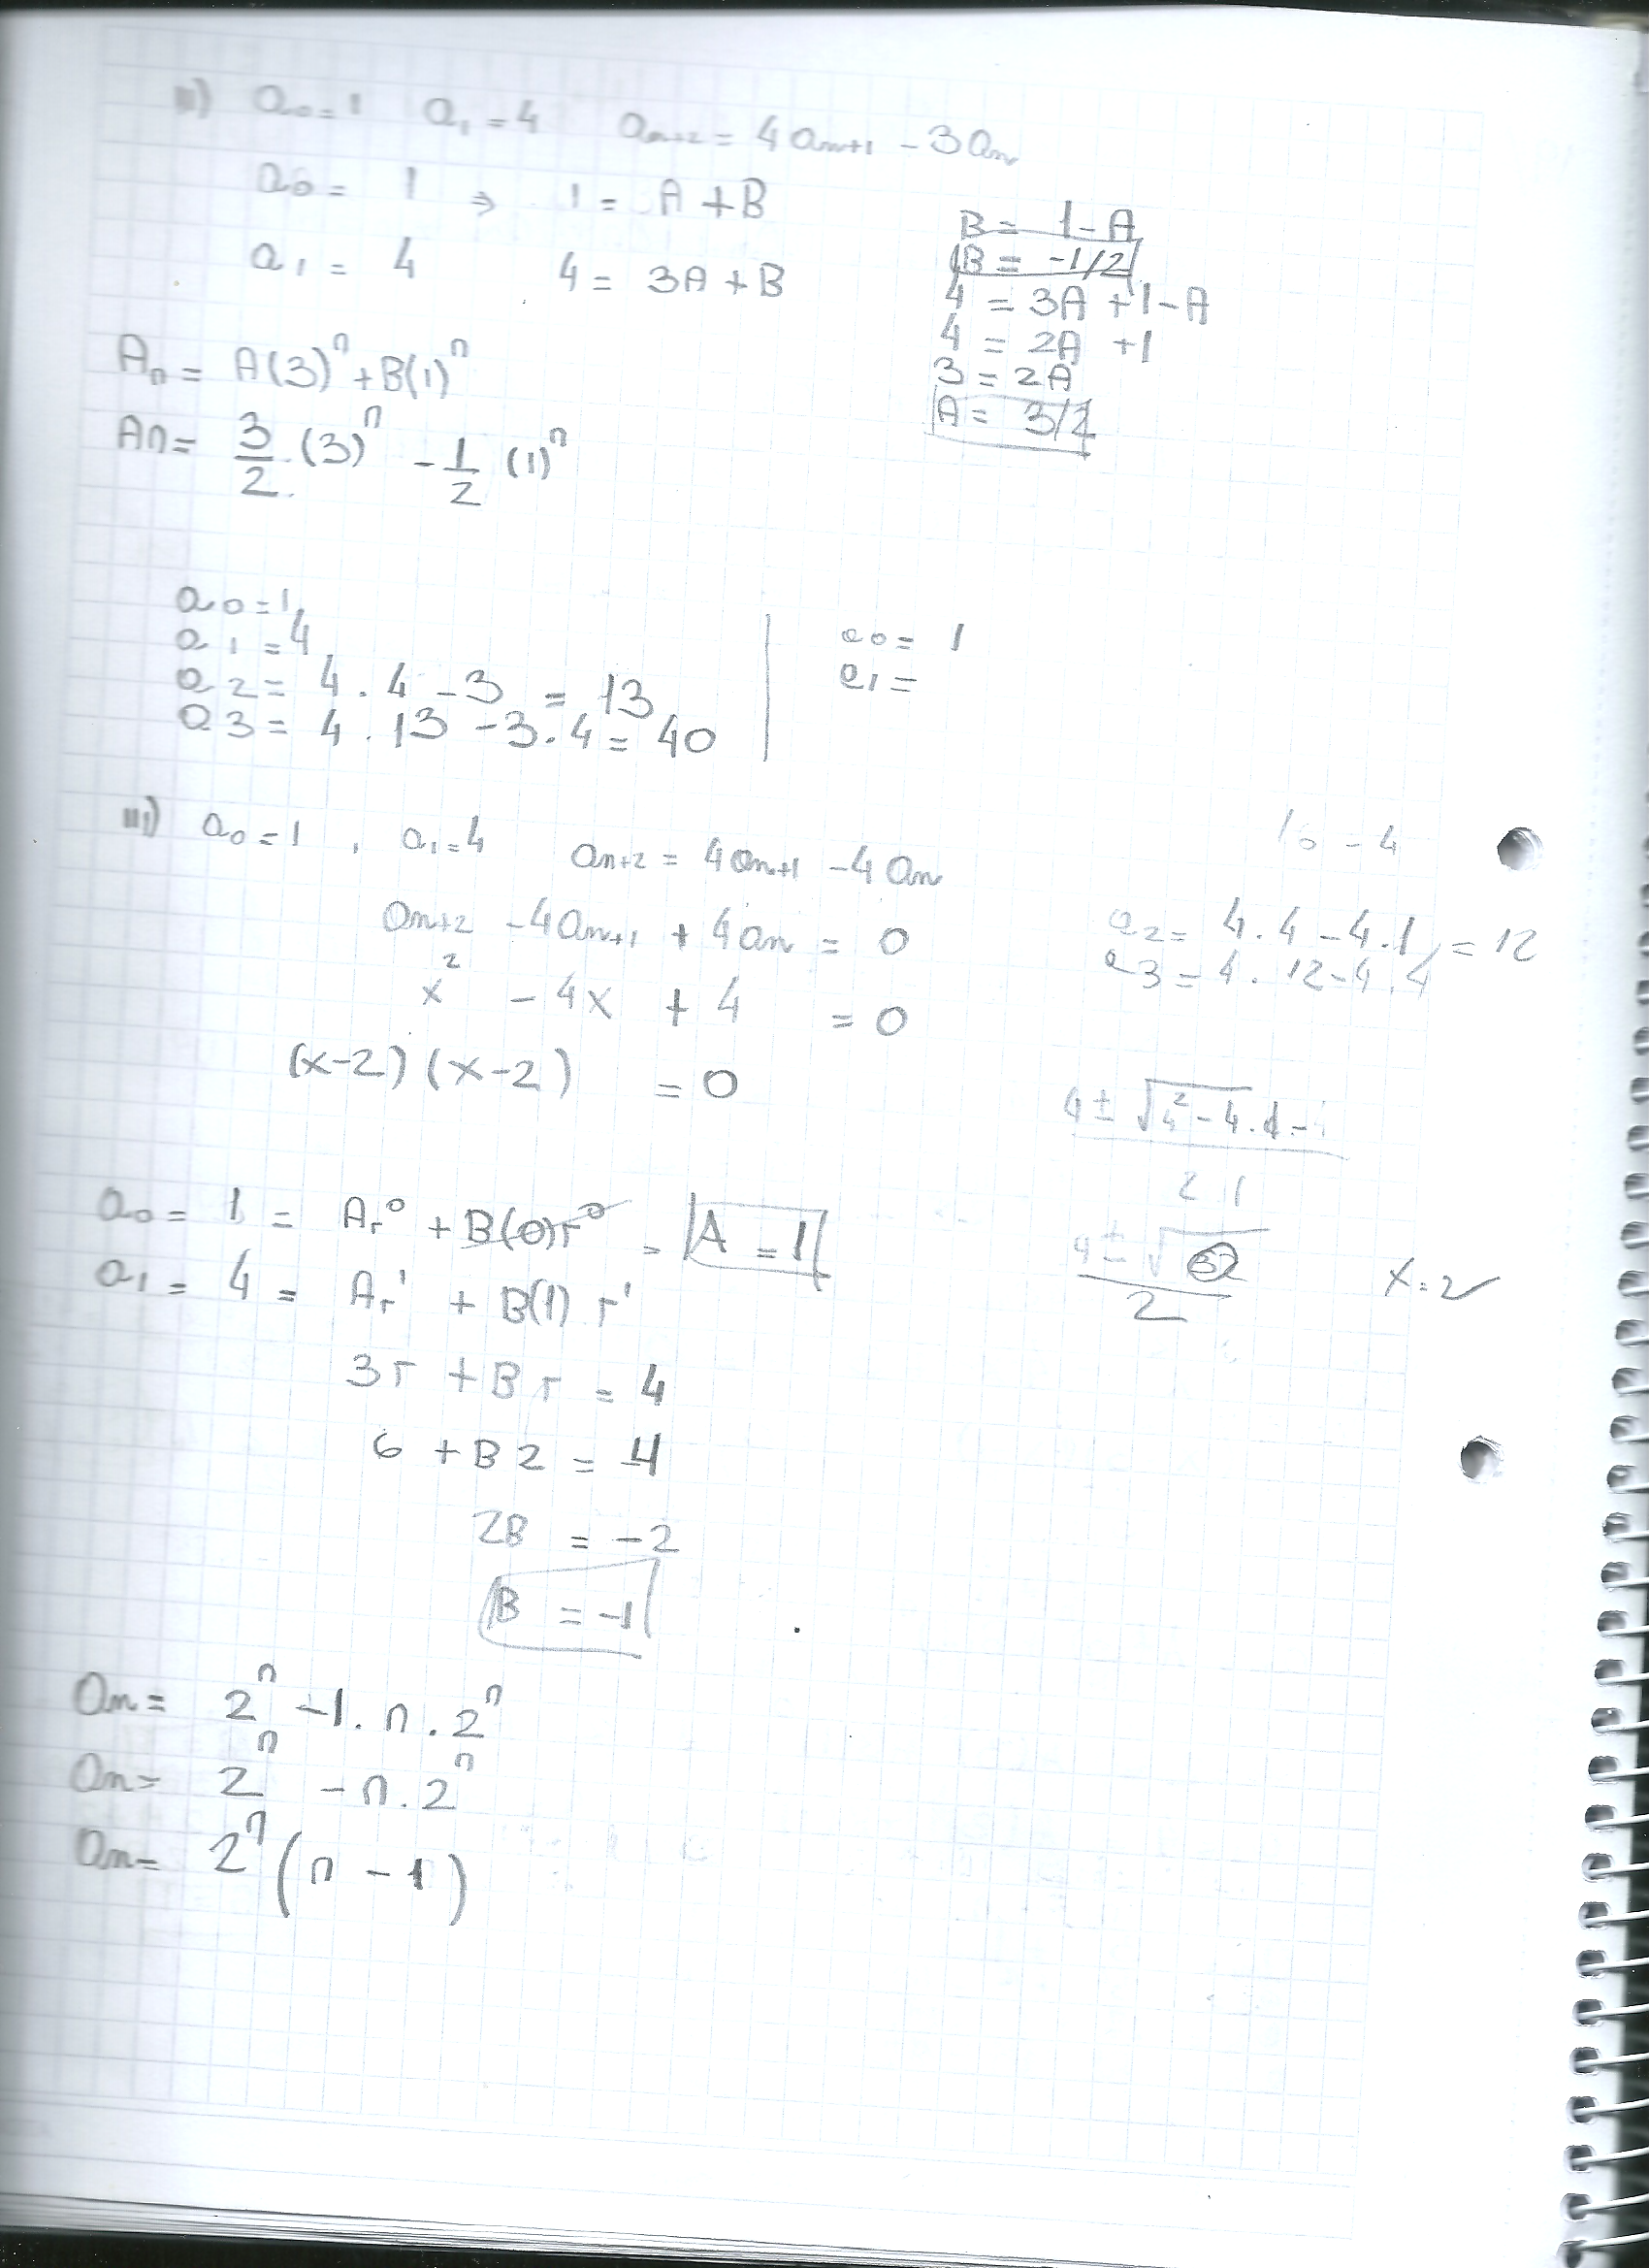 ii) a₀=1 a₁=4 aₙ₊₂ = 4aₙ₊₁ - 3aₙ
a₀ = 1 ⇒ 1 = A + B
a₁ = 4 4 = 3A + B
B = 1-A
B = -1/2
4 = 3A + 1 - A
4 = 2A + 1
3 = 2A
A = 3/2
Aₙ = A(3)ⁿ + B(1)ⁿ
An = 3/2 . (3)ⁿ - 1/2 (1)ⁿ
a₀ = 1
a₁ = 4
a₂ = 4 . 4 - 3 = 13
a₃ = 4 . 13 - 3 . 4 = 40
a₀ = 1
a₁ =
iii) a₀ = 1 , a₁ = 4 aₙ₊₂ = 4aₙ₊₁ - 4aₙ
aₙ₊₂ - 4aₙ₊₁ + 4aₙ = 0
x² - 4x + 4 = 0
(x-2) (x-2) = 0
- 4
a₂ = 4 . 4 - 4 . 1 = 12
a₃ = 4 . 12 - 4 . 4
4 ± √4² - 4 . 4 -
2 1
4 ± √
2
x = 2
a₀ = 1 = Ar⁰ + B(0)r⁰ = A = 1
a₁ = 4 = Ar¹ + B(1) r¹
3r + Br = 4
6 + B2 = 4
2B = -2
B = -1
aₙ = 2ⁿ - 1 . n . 2ⁿ
aₙ = 2ⁿ - n . 2ⁿ
aₙ = 2ⁿ (n - 1)